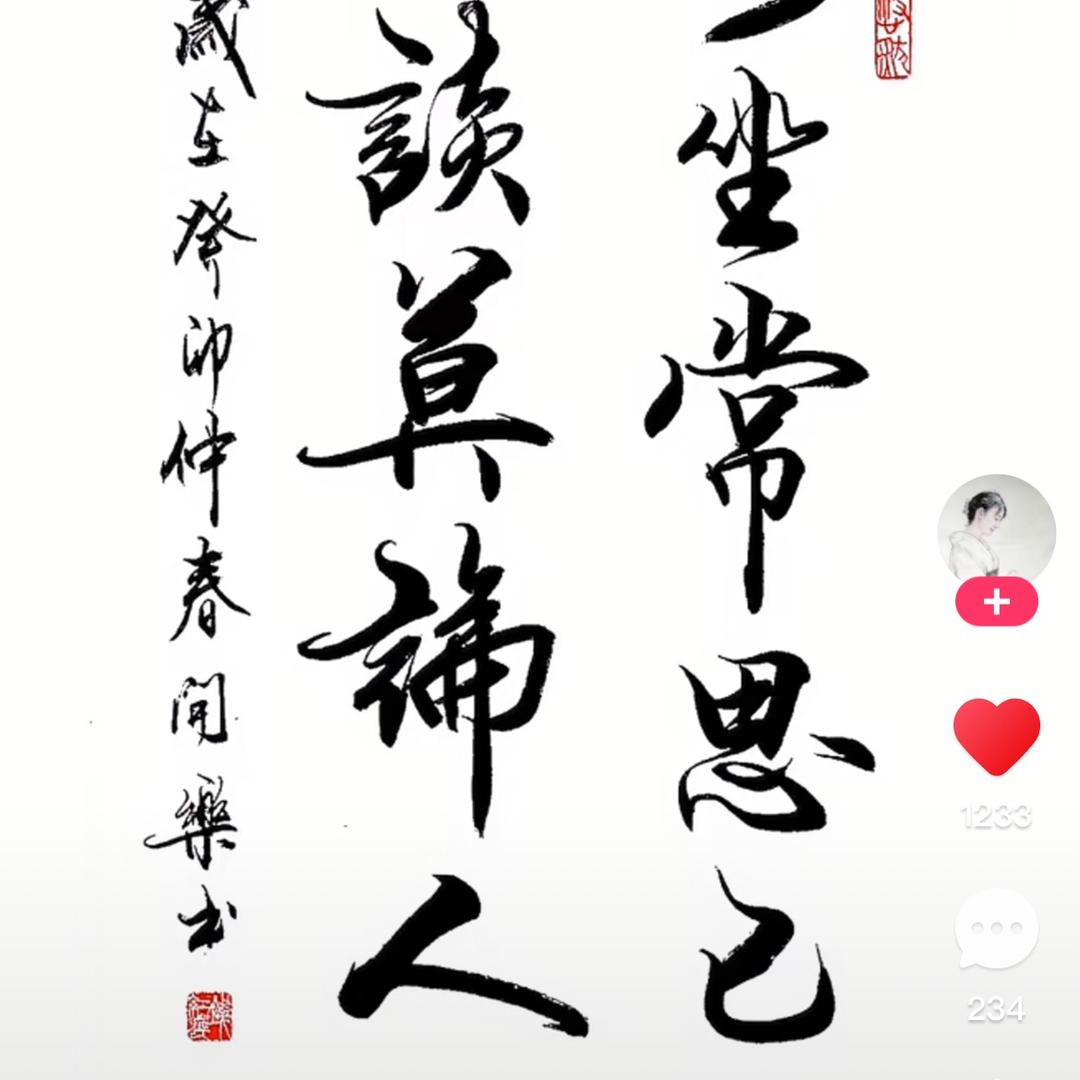 坐常思己
談莫論人
歲在癸卯仲春閒樂书
1233
234